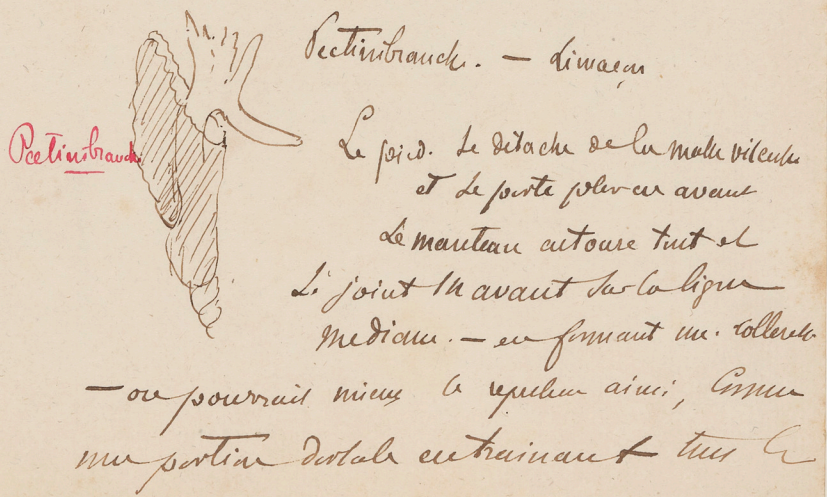 Pectinibranche. — Limaçon
Pectinibranche
Le pied. se détache de la masse viscerale
et se porte plus en avant
Le manteau entoure tout et
se joint en avant sur la ligne
mediane. — en formant une. collerette
— on pourrait mieux le ainsi, comme
une portion dorsale entrainant tous le